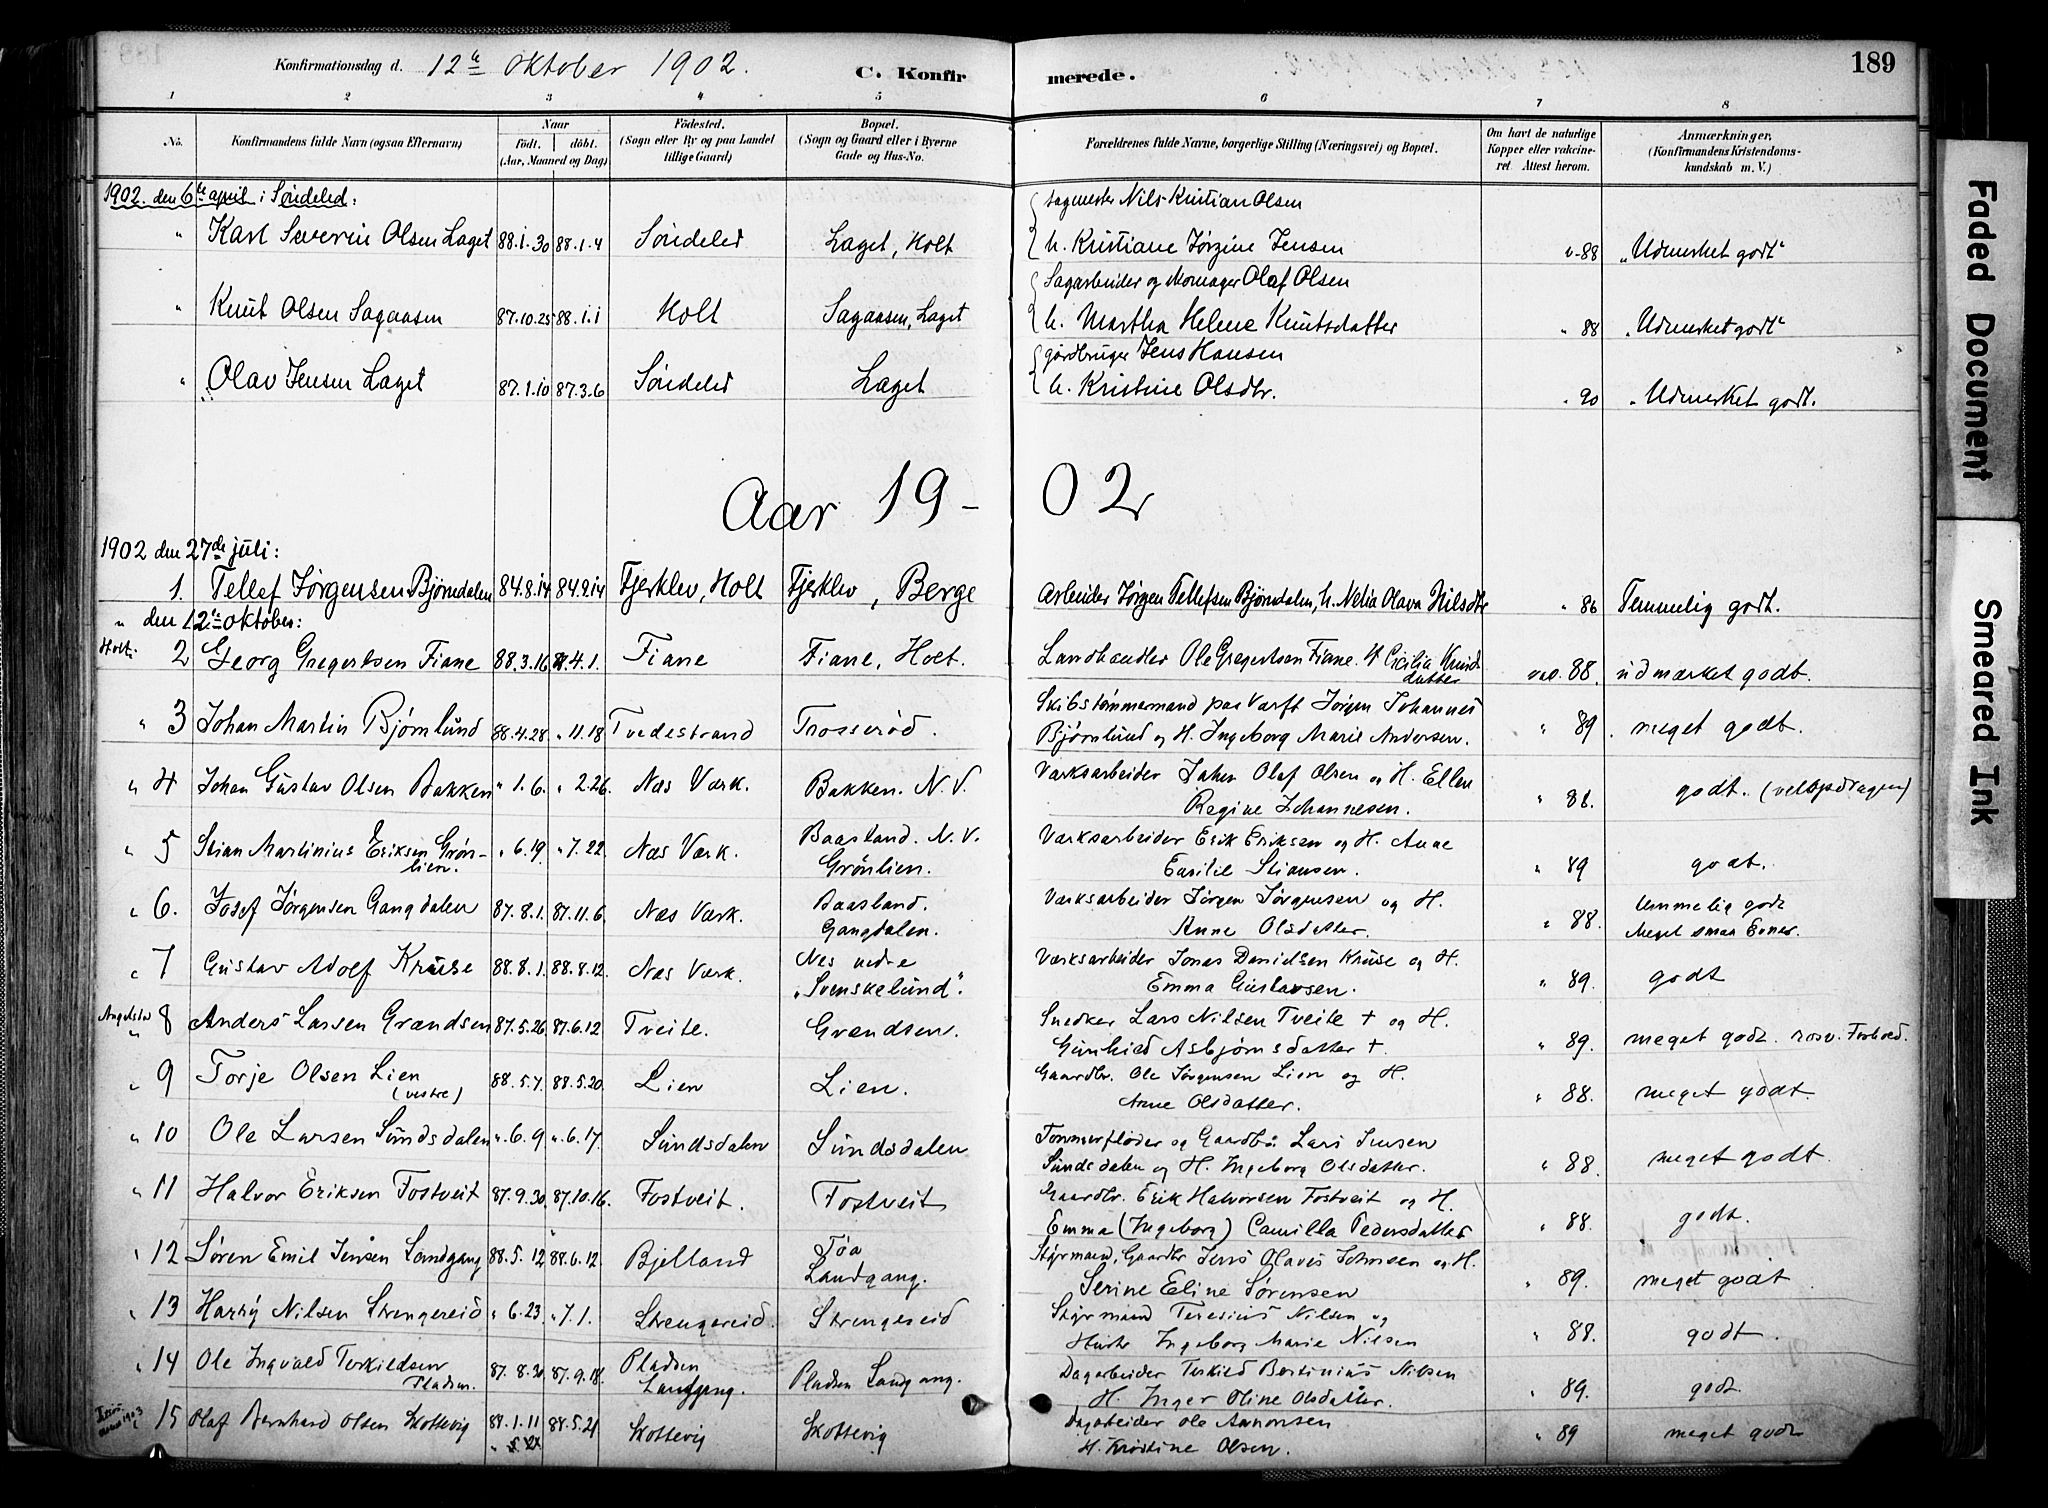 Konfirmationsdag d. 12te Oktober 1902. C. Konfirmerede. 189
1 2 3 4 5 6 7 8
No. Konfirmandens fulde Navn (ogsaa Efternavn) Naar født. døbt. (Aar, Maaned og Dag) Fødested. (Sogn eller By og paa Landet tillige Gaard) Bopæl. (Sogn og Gaard eller i Byerne Gade og Hus-No. Forældrenes fulde Navne, borgerlige Stilling (Næringsvei) og Bopæl. Om havt de naturlige Kopper eller vakcineret Attest herom. Anmærkninger. (Konfirmandens Kristendomskundskab m. V.)
1902 den 6te april i Søndeled:
" Karl Severin Olsen Laget 88.1.30 88.1.4 Søndeled Laget, Holt Sagmester Nils Kristian Olsen
h. Kristiane Jørgine Jensen v-88 "Udmerket godt"
" Knut Olsen Sagaasen 87.10.25 88.1.1 Holt Sagaasen, Laget Sagarbeider og Olaf Olsen
h. Martha Helene Knutsdatter " 88 "Udmerket godt"
" Olav Jensen Laget 87.1.10 87.3.6 Søndeled Laget gårdbruger Jens Hansen
h. Kristine Olsdtr. " 90 "Udmerket godt.
Aar 19-02
1902 den 27de juli:
1. Tellef Jørgensen Bjørndalen 84.8.14 84.9.14 Fjerklev, Holt Fjerklev, Berge Arbeider Jørgen Tellefsen Bjørndalen, h. Nelia Olava Nilsdtr " 86 Temmelig godt.
" den 12te oktober:
Holt: 2 Georg Gregertsen Fiane 88.3.16 4.1. Fiane Fiane, Holt. Landhandler Ole Gregertsen Fiane. H Cicilia Knuds
datter vac. 88. udmærket godt.
" 3 Johan Martin Bjørnlund 88.4.28 " 11.18 Tvedestrand Trosserød. Skibstømmermand paa Værft Jørgen Johannes
Bjørnlund og H. Ingeborg Marie Andersen. " 89. meget godt.
" 4 Johan Gustav Olsen Bakken " 1.6. " 2.26. Næs Værk. Bakken. N.V. Værksarbeider Jahn Olaf Olsen og H. Ellen
Regine Johannesen. " 88. godt. (velopdragen)
" 5 Stian Martinius Eriksen Grøn-
lien. " 6.19 " 7.22 Næs Værk. Baasland. N.V.
Grønlien. Værksarbeider Erik Eriksen og H. Anne
Emilie Stiansen. " 89 godt.
" 6. Josef Jørgensen Gangdalen 87.8.1. 87.11.6 Næs Værk. Baasland.
Gangdalen. Værksarbeider Jørgen Jørgensen og H.
Anne Olsdatter. " 88. temmelig godt
Meget smaa Evner.
" 7 Gustav Adolf Kruse 88.8.1. 88.8.12. Næs Værk. Nes nedre
"Svenskelund". Værksarbeider Jonas Danielsen Kruse og H.
Emma Gustavsen. " 89. godt
8 Anders Larsen Grændsen 87.5.26 87.6.12 Tveite. Grændsen. Snedker Lars Nilsen Tveite + og H.
Gunhild Asbjørnsdatter +. " 89. meget godt. rosv. Forhold.
" 9 Torje Olsen Lien
(vestre) 88.5.7. 88.5.20. Lien Lien. Gaardbr. Ole Jørgensen Lien og H.
Anne Olsdatter. " 88. meget godt.
" 10 Ole Larsen Sundsdalen " 6.9 " 6.17. Sundsdalen Sundsdalen Tømmerfløder og Gaardb: Lars Jensen
Sundsdalen og H. Ingeborg Olsdatter. " 88. meget godt.
" 11 Halvor Eriksen Fostveit 87.9.30 87.10.16. Fostveit. Fostveit Gaardbr. Erik Halvorsen Fostveit og H.
Emma (Ingeborg) Camilla Pedersdatter " 88. godt.
" 12 Søren Emil Jensen Landgang 88.5.12 88.6.12. Bjelland Tøa
Landgang. Styrmand, Gaardbr Jens Olavus Johnsen og H.
Serine Eline Sørensen " 89. meget godt
" 13 Harry Nilsen Strengereid " 6.23 " 7.1. Strengereid. Strengereid Styrmand Teresius Nilsen og
Hustr Ingeborg Marie Nilsen " 88. godt.
" 14 Ole Ingvald Terkildsen
Pladsen. 87.8.30 87.9.18. Pladsen
Landgang. Pladsen Landgang. Dagarbeider Terkild Bertinius Nilsen
H. Inger Oline Olsdatter. " 89. godt
15 Olaf Bernhard Olsen Skottevig 88.1.11 88.5.21 Skottevig Skottevig Dagarbeider Ole Aanonsen
H. Kristine Olsen. " 89 meget godt
Faded Document
Smeared Ink